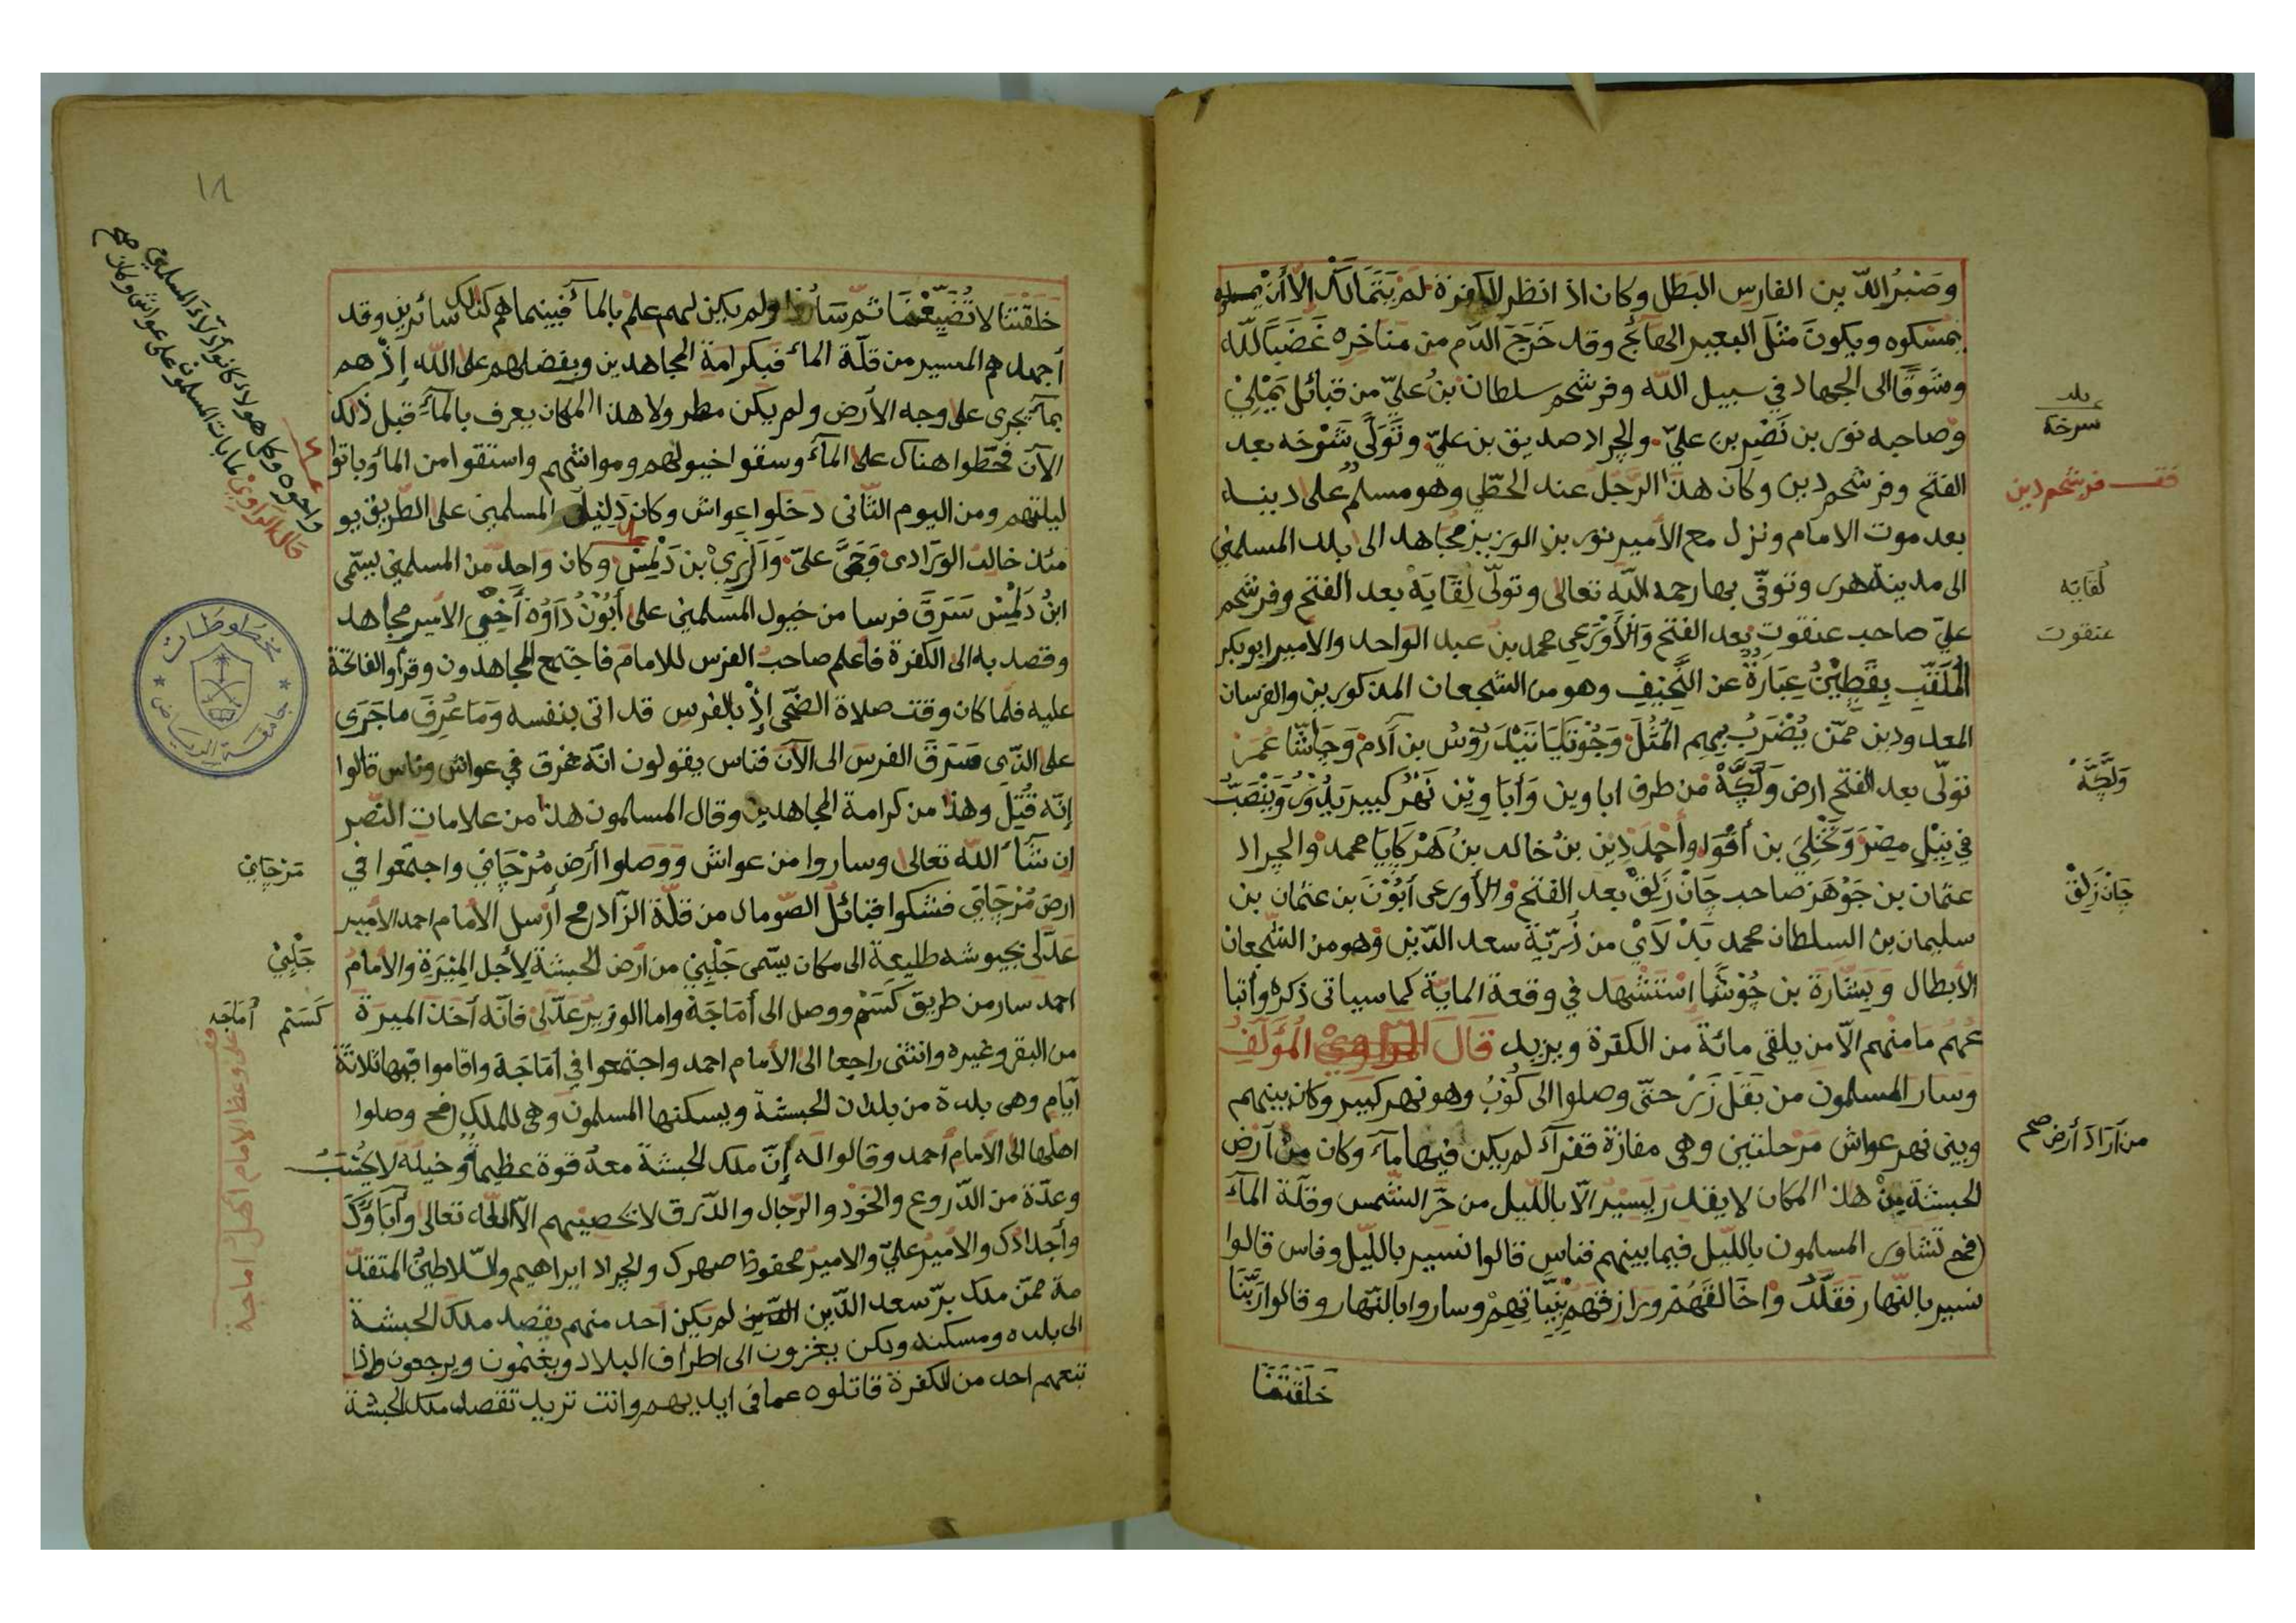 وصَبْرُالدّين الفارس البَطل وكان اذا نظر للكفرة لَمْ يَتَمَالَكْ الاّ أَنْ
يمسكوه ويكونَ مثلَ البعير الهائج وقد خَرَجَ الدّم من مناخره غَضَبًا للّه
وشوقًا الى الجهاد في سبيل الله وفرشحم سلطان بنُ عليّ من قبائل
وصاحبه نور بن نَصْر بن عليّ والجراد صديق بن عليّ وتَوَلَّى شَرْخَه بعد
الفتح وفرشحم دين وكان هذا الرّجل عند الحطّي وهو مسلم على دينه
بعد موت الامام ونزل مع الأمير نور بن الوزير مجاهد الى بلد المسلمين
الى مدينة هرر وتوفّي بها رحمه الله تعالى وتولّى لِقَايَه بعد الفتح وفرشحم
عليّ صاحب عنقوت بعد الفتح والأَوْرَعِي محمد بن عبد الواحد والأمير ابوبكر
المُلَقَّب بِقَطِيْنْ عِبَارَةٌ عن النّحيف وهو من الشجعان المذكورين والفرسان
المعدودين ممّن يُضْرَبُ بهم المُثُلَ بن آدم عُمَر
تولّى بعد الفتح ارض من طرف اباوين وَأَبَاوِيْن نَهْرٌ كبير وَيَنْصَبُّ
في نِيْلِ مِصْرَ بن وأحمد دين بن خالد بن محمد والجراد
عثمان بن جَوْهَر صاحب جَانْ زَلِقْ بعد الفتح والأورعى أَبُوْنَ بن عثمان بن
سليمان بن السلطان محمد بَدْلَايْ من ذُرّيّة سعد الدّين وهو من الشّجعان
الأبطال وَبِشَارَة بن اسْتَشْهد في وقعة كما سياتى ذكره وأتبا
عُهُم مامنهم الاّ من يلقى مائة من الكفرة ويزيد قَالَ المُؤَلّفُ
وسار المسلمون من بَقَل زَرْ حتى وصلوا الى كُوْبُ وهو نهر كبير وكان بينهم
وبين نهر عواش مَرْحلتين وهى مفازة قفرآء لم يكن فيها مآء وكان مَنْ أرض
الحبشة من هذا المكان لا يقدر يَسِيْرُ الاّ بالليل من حَرّ الشّمس وقلّة المآء
فح تشاور المسلمون باللّيل فيما بينهم فناس قالوا نسير باللّيل وناس قالوا
نسير بالنّهار فَقَلَّدُوْا خَالِقَهُمْ وَرَازِقَهُم بِنِيَّاتِهِمْ وساروا بالنّهار وقالوا رَبَّنَا
خَلَقْتَنَا
بلد
سرخة
قف فرشحم دين
لُقَايَه
عنقوت
جَانْ زَلِقْ
من أراد أرض صح
١٨
خَلَقْتَنَا لا تُضَيِّعْنَا ثمّ سَارُوا ولم يكن لهم علم بالمآء فبينما هم كذلك سائرين وقد
أجهدهم المسير من قلّة المآء فبكرامة المجاهدين وبفضلهم على الله إذْ هم
بمآء يجرى على وجه الأرض ولم يكن مطر ولا هذا المكان يعرف بالمآء قبل ذلك
الآن فحطّوا هناك على المآء وسقوا خيولهم ومواشيهم واستقوا من المآء وباتوا
ليلتهم ومن اليوم الثّانى دخلوا عواش وكان دليلُ المسلمين على الطّريق يو
مئذ خالد الورّادى عليّ بن دَلْمِسْ وكان واحد من المسلمين يسمّى
ابنُ دَلْمِسْ سَرَقَ فرسا من خيول المسلمين على أَبُوْنْ أخي الأمير مجاهد
وقصد به الى الكفرة فأعلم صاحبُ الفرس للامام فاجتمع المجاهدون وقرأوا الفاتحة
عليه فلمّا كان وقت صلاة الضّحى إذْ بالفرس قد اتى بنفسه وَمَا عُرِفَ ماجَرَى
على الذّى سَرَقَ الفرسَ الى الآن فناس يقولون انّه غرق في عواش وناس قالوا
إنّه قُتِلَ وهذا من كرامة المجاهدين وقال المسلمون هذا من علامات النّصر
ان شآء الله تعالى وساروا من عواش ووصلوا أرض مُرْجَاني واجتمعوا في
ارض مُرْجَاني فشكوا قبائلُ الصّومال من قلّة الزّاد فح أرسل الأمام احمد الأمير
عَدَلى بجيوشه طليعة الى مكان يسّمى جَلِبَيْ من أرض الحبشة لأجل المِيْرَةِ والأمام
احمد سار من طريق كَسَمْ ووصل الى أمَاجَةْ واما الوزير عَدّلى فانّه أخذ الميرة
من البقر وغيره وانثنى راجعا الى الأمام احمد واجتمعوا في أمَاجَة واقاموا فيها ثلاثة
أيّام وهى بلدة من بلدان الحبشة ويسكنها المسلمون وهى للملك فح وصلوا
اهلها الى الأمام أحمد وقالوا له إنّ ملك الحبشة معه قوة عظيمة وخيله لا يحُسَبُ
وعدّة من الدّروع والخُوَد والرّجال والدّرق لا تحصيهم الاّ الله تعالى وآبَاؤكَ
وأجدادك والأمير عليّ والامير محفوظ صهرك والجراد ابراهيم والسّلاطينُ المتقدّ
مة ممّن ملك برّ سعد الدّين لم يكن أحد منهم يقصد ملك الحبشة
الى بلده ومسكنه ولكن يغزون الى اطراف البلاد ويغنمون ويرجعون واذا
تبعهم احد من الكفرة قاتلوه عما في ايديهم وانت تريد تقصد ملك الحبشة
مَرْجَاني
جَلِبَيْ
كَسَمْ
أمَاجَه
قف على وعظ الامام اهل اماجة
مخطوطات
جامعة الرياض